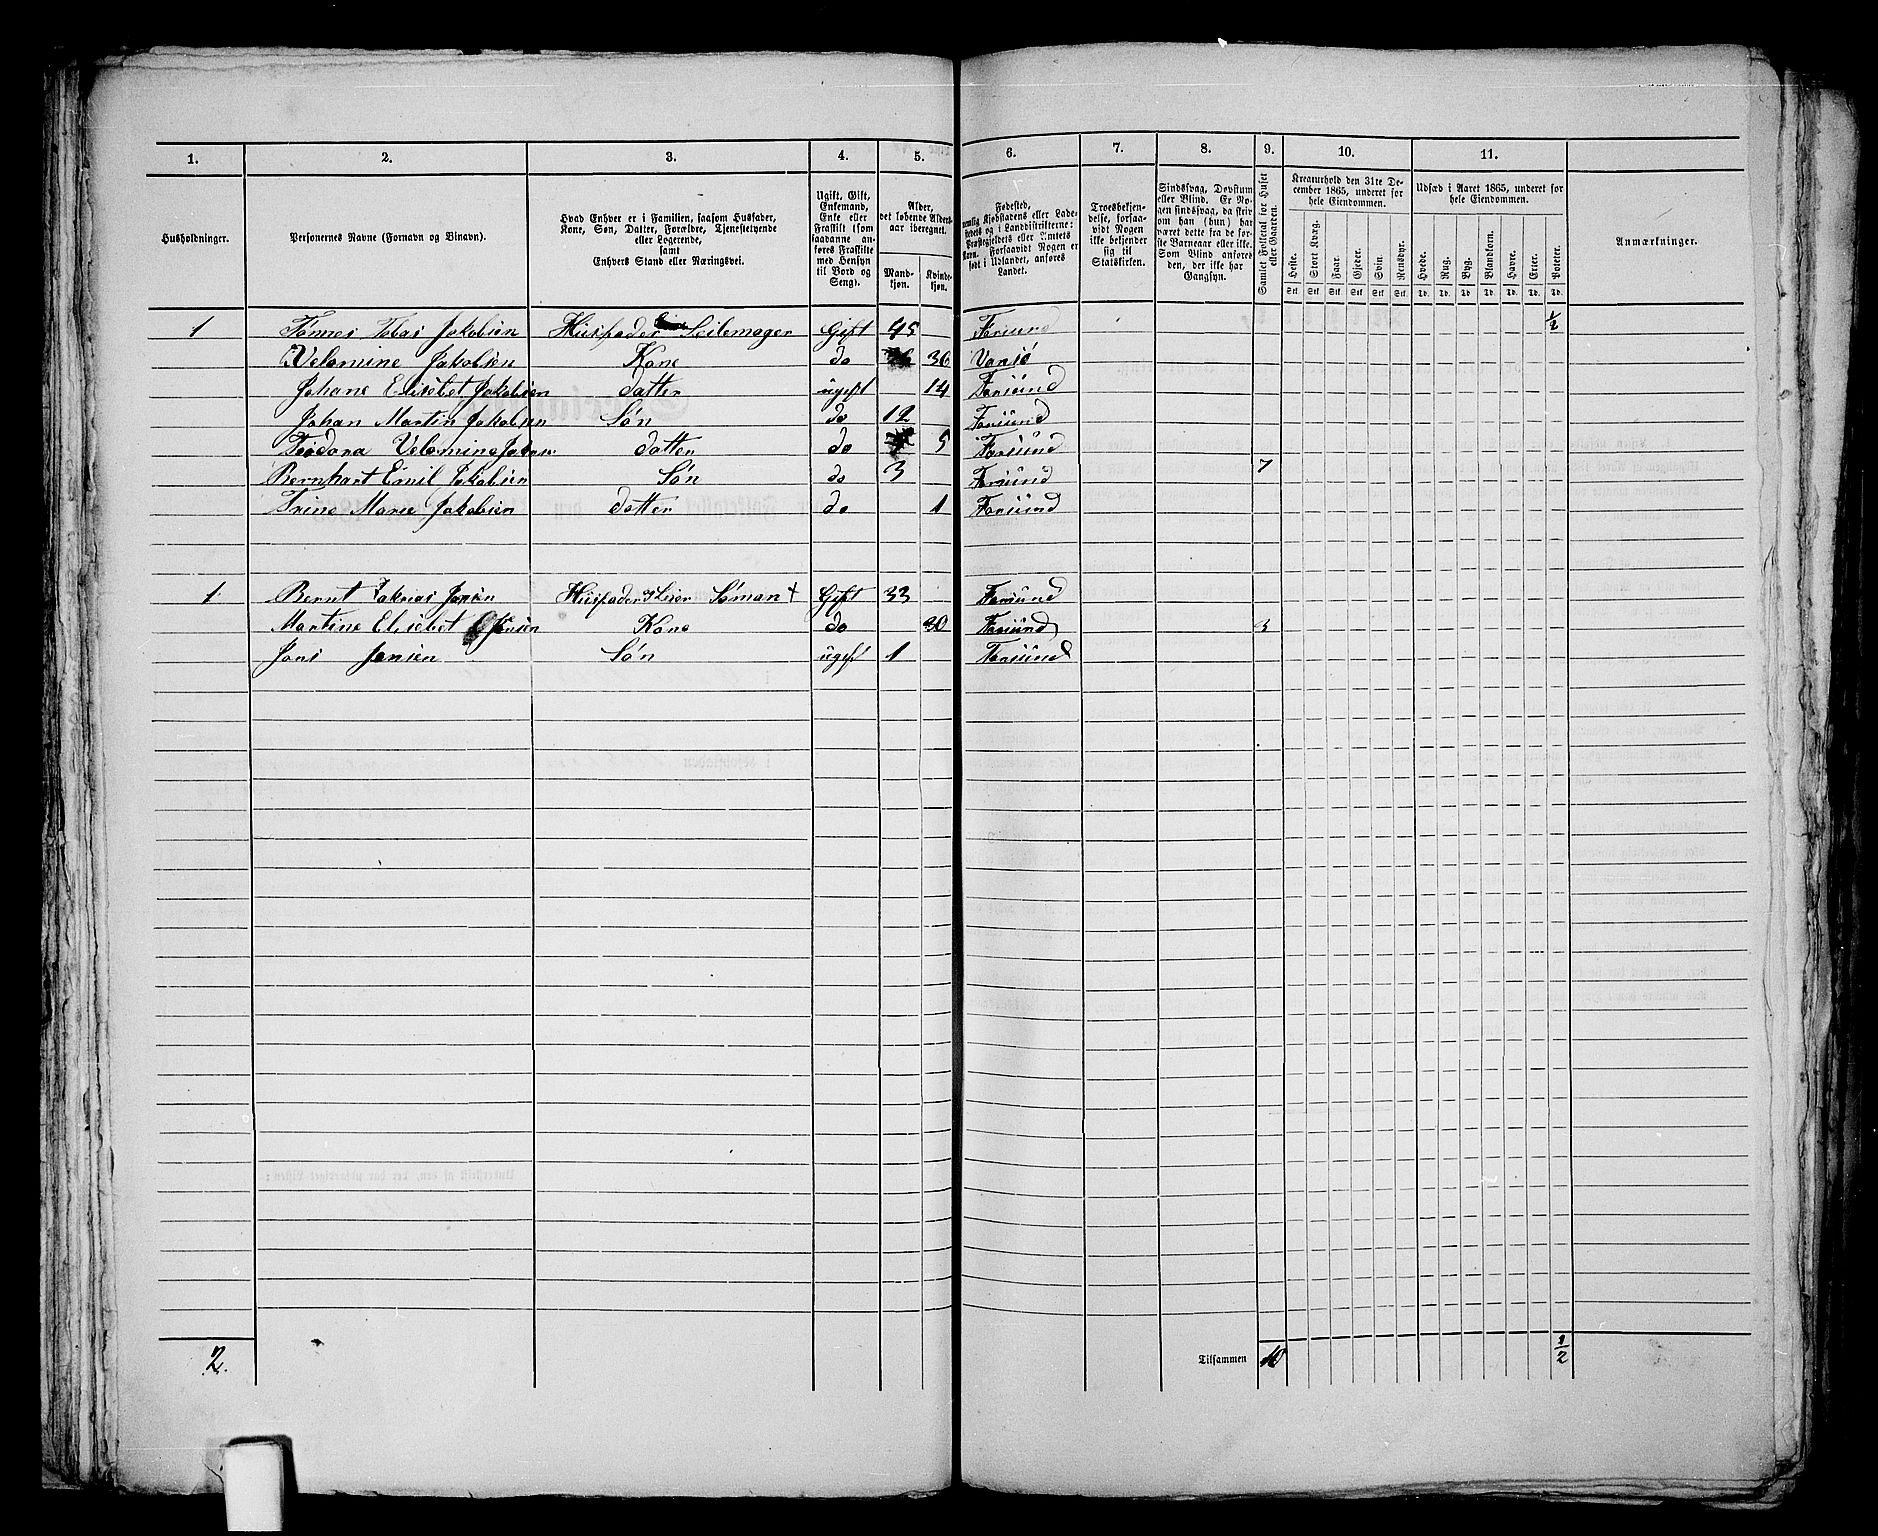 1. 2. 3. 4. 5. 6. 7. 8. 9. 10. 11.
Husholdninger.
Personernes Navne (Fornavn og Binavn).
Hvad Enhver er i Familien, saasom Husfader,
Kone, Søn, Datter, Forældre, Tjenestetyende
eller Logerende,
samt
Enhvers Stand eller Næringsvei.
Ugift, Gift,
Enkemand,
Enke eller
Fraskilt (som
saadanne an-
føres Fraskilte
med Hensyn
til Bord og
Seng).
Alder,
det løbende Alders-
aar iberegnet.
Mand-
kjøn.
Kvinde-
kjøn.
Fødested,
nemlig Kjøbstadens eller Lade-
stedets og i Landdistrikterne:
Præstegjeldets eller Amtets
Navn. Forsaavidt Nogen er
født i Udlandet, anføres
Landet.
Troesbekjen-
delse, forsaa-
vidt Nogen
ikke bekjender
sig til
Statskirken.
Sindssvag, Døvstum
eller Blind. Er No-
gen sindssvag, da skriv
om han (hun) har
været dette fra de før-
ste Barneaar eller ikke.
Som Blind anføres
den, der ikke har
Gangsyn.
Samlet Folketal for Huset
eller Gaarden.
Kreaturhold den 31te De-
cember 1865, underet for
hele Eiendommen.
Heste. Stort Kvæg. Faar. Gjeder. Svin. Rensdyr.
Stk. Stk. Stk. Stk. Stk. Stk.
Udsæd i Aaret 1865, underet for
hele Eiendommen.
Hvede. Rug. Byg. Blandkorn. Havre. Erter. Poteter.
Td. Td. Td. Td. Td. Td. Td.
Anmærkninger.
1 Tønnes Tobas Jakobsen Husfader Seilemager Gift 45 Farsund 1/2
Velamine Jakobsen Kone do 36 Vansø
Johane Elisebet Jakobsen datter ugift 14 Farsund
Johan Martin Jakobsen Søn do 12 Farsund
Teodora Velamine Jakobsen datter do 5 Farsund
Bernhart Emil Jakobsen Søn do 3 Farsund 7
Trine Marie Jakobsen datter do 1 Farsund
1 Bernt Jansen Husfader Søman + Gift 33 Farsund
Martine Elisebet Jansen Kone do 30 Farsund 3
Jons Jansen Søn ugift 1 Farsund
2. Tilsammen 10 1/2